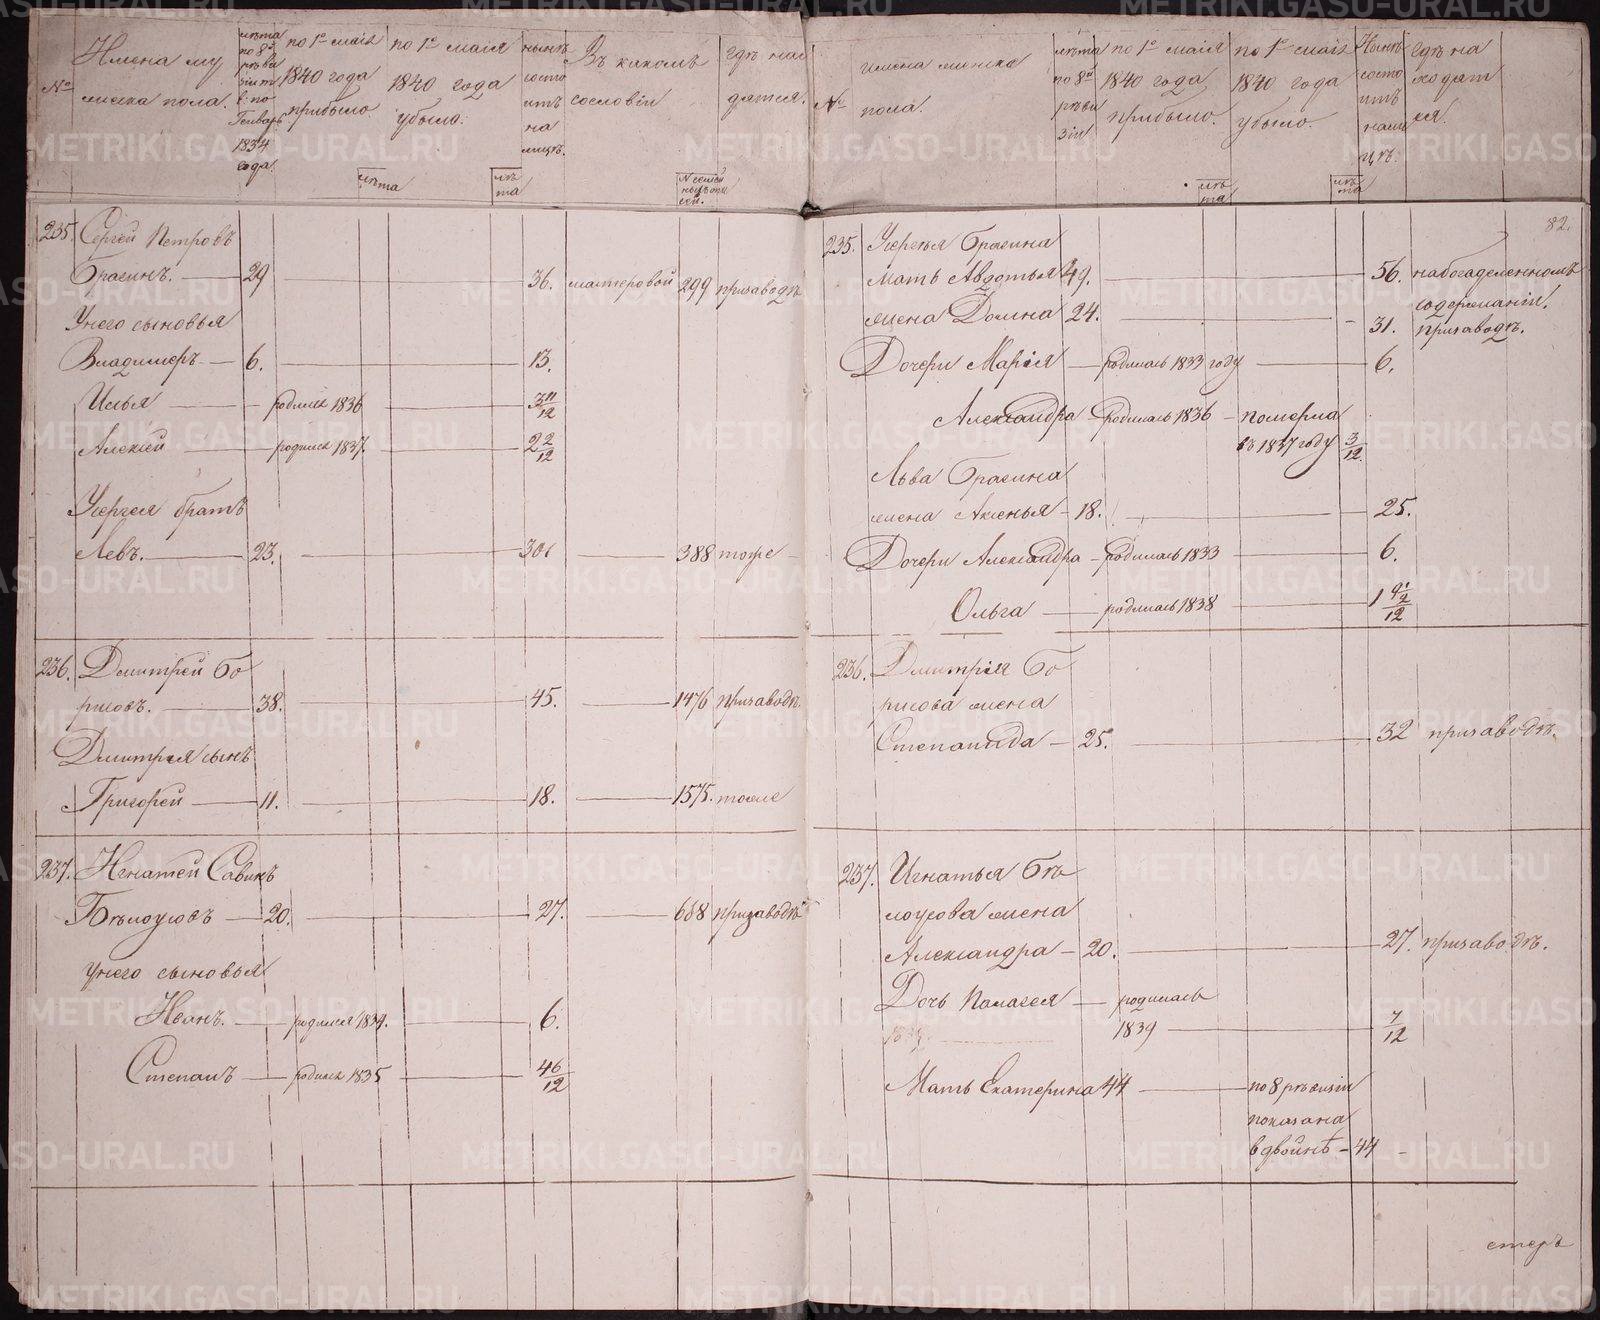 №
Имена му
жеска пола.
лѣта
по 8й
рѣви
зіи т
е: по
Генварь
1834
года.
по 1е маія
1840 года
прибыло.
лѣта
по 1е маія
1840 года
убыло.
лѣ
та
нынѣ
состо
итъ
на
лицѣ.
Въ какомъ
сословіи
№ семей
ныхъ спи
сей.
гдѣ нахо
дятся.
235. Сергей Петровъ
Брагинъ. 29 36. мастеровой 299 призаводѣ
Унего сыновья
Владимеръ 6. 13.
Илья родился 1836 3 11/12
Алексей родился 1837. 2 2/12
Усергея братъ
Левъ. 23. 30. 388 тоже
236. Дмитрей Бо
рисовъ. 38. 45. 1476 призаводѣ.
Дмитрея сынъ
Григорей 11. 18. 1575. тоже
237. Игнатей Савинъ
Бѣлоусовъ 20. 27. 688 призаводѣ
унего сыновья
Иванъ. родился 1834. 6.
Степанъ родился 1835 4 6/12
№
имена женска
пола.
лѣта
по 8й
рѣви
зіи
по 1е маія
1840 года
прибыло.
лѣ
та
по 1е маія
1840 года
убыло.
лѣ
та
Нынѣ
состо
итъ
нали
цѣ.
гдѣ на
ходят
ся.
82.
235. Усергея Брагина
мать Авдотья 49. 56. набогаделенномъ
содержаніи.
жена Домна 24. 31. призаводѣ.
Дочери Марія родилась 1833 году 6.
Александра родилась 1836 померла
въ 1837 году 3/12.
Льва Брагина
жена Аксенья 18. 25.
Дочери Александра родилась 1833 6.
Ольга родилась 1838 1
236. Дмитрія Бо
рисова жена
Степанида 25. 32 призаводѣ.
237. Игнатья Бѣ
лоусова жена
Александра 20. 27. призаводѣ.
Дочь Палагея родилась
1839 7/12
Мать Екатерина 44 по 8 рѣвизіи
показана
вдвойнѣ 44
METRIKI.GASO-URAL.RU